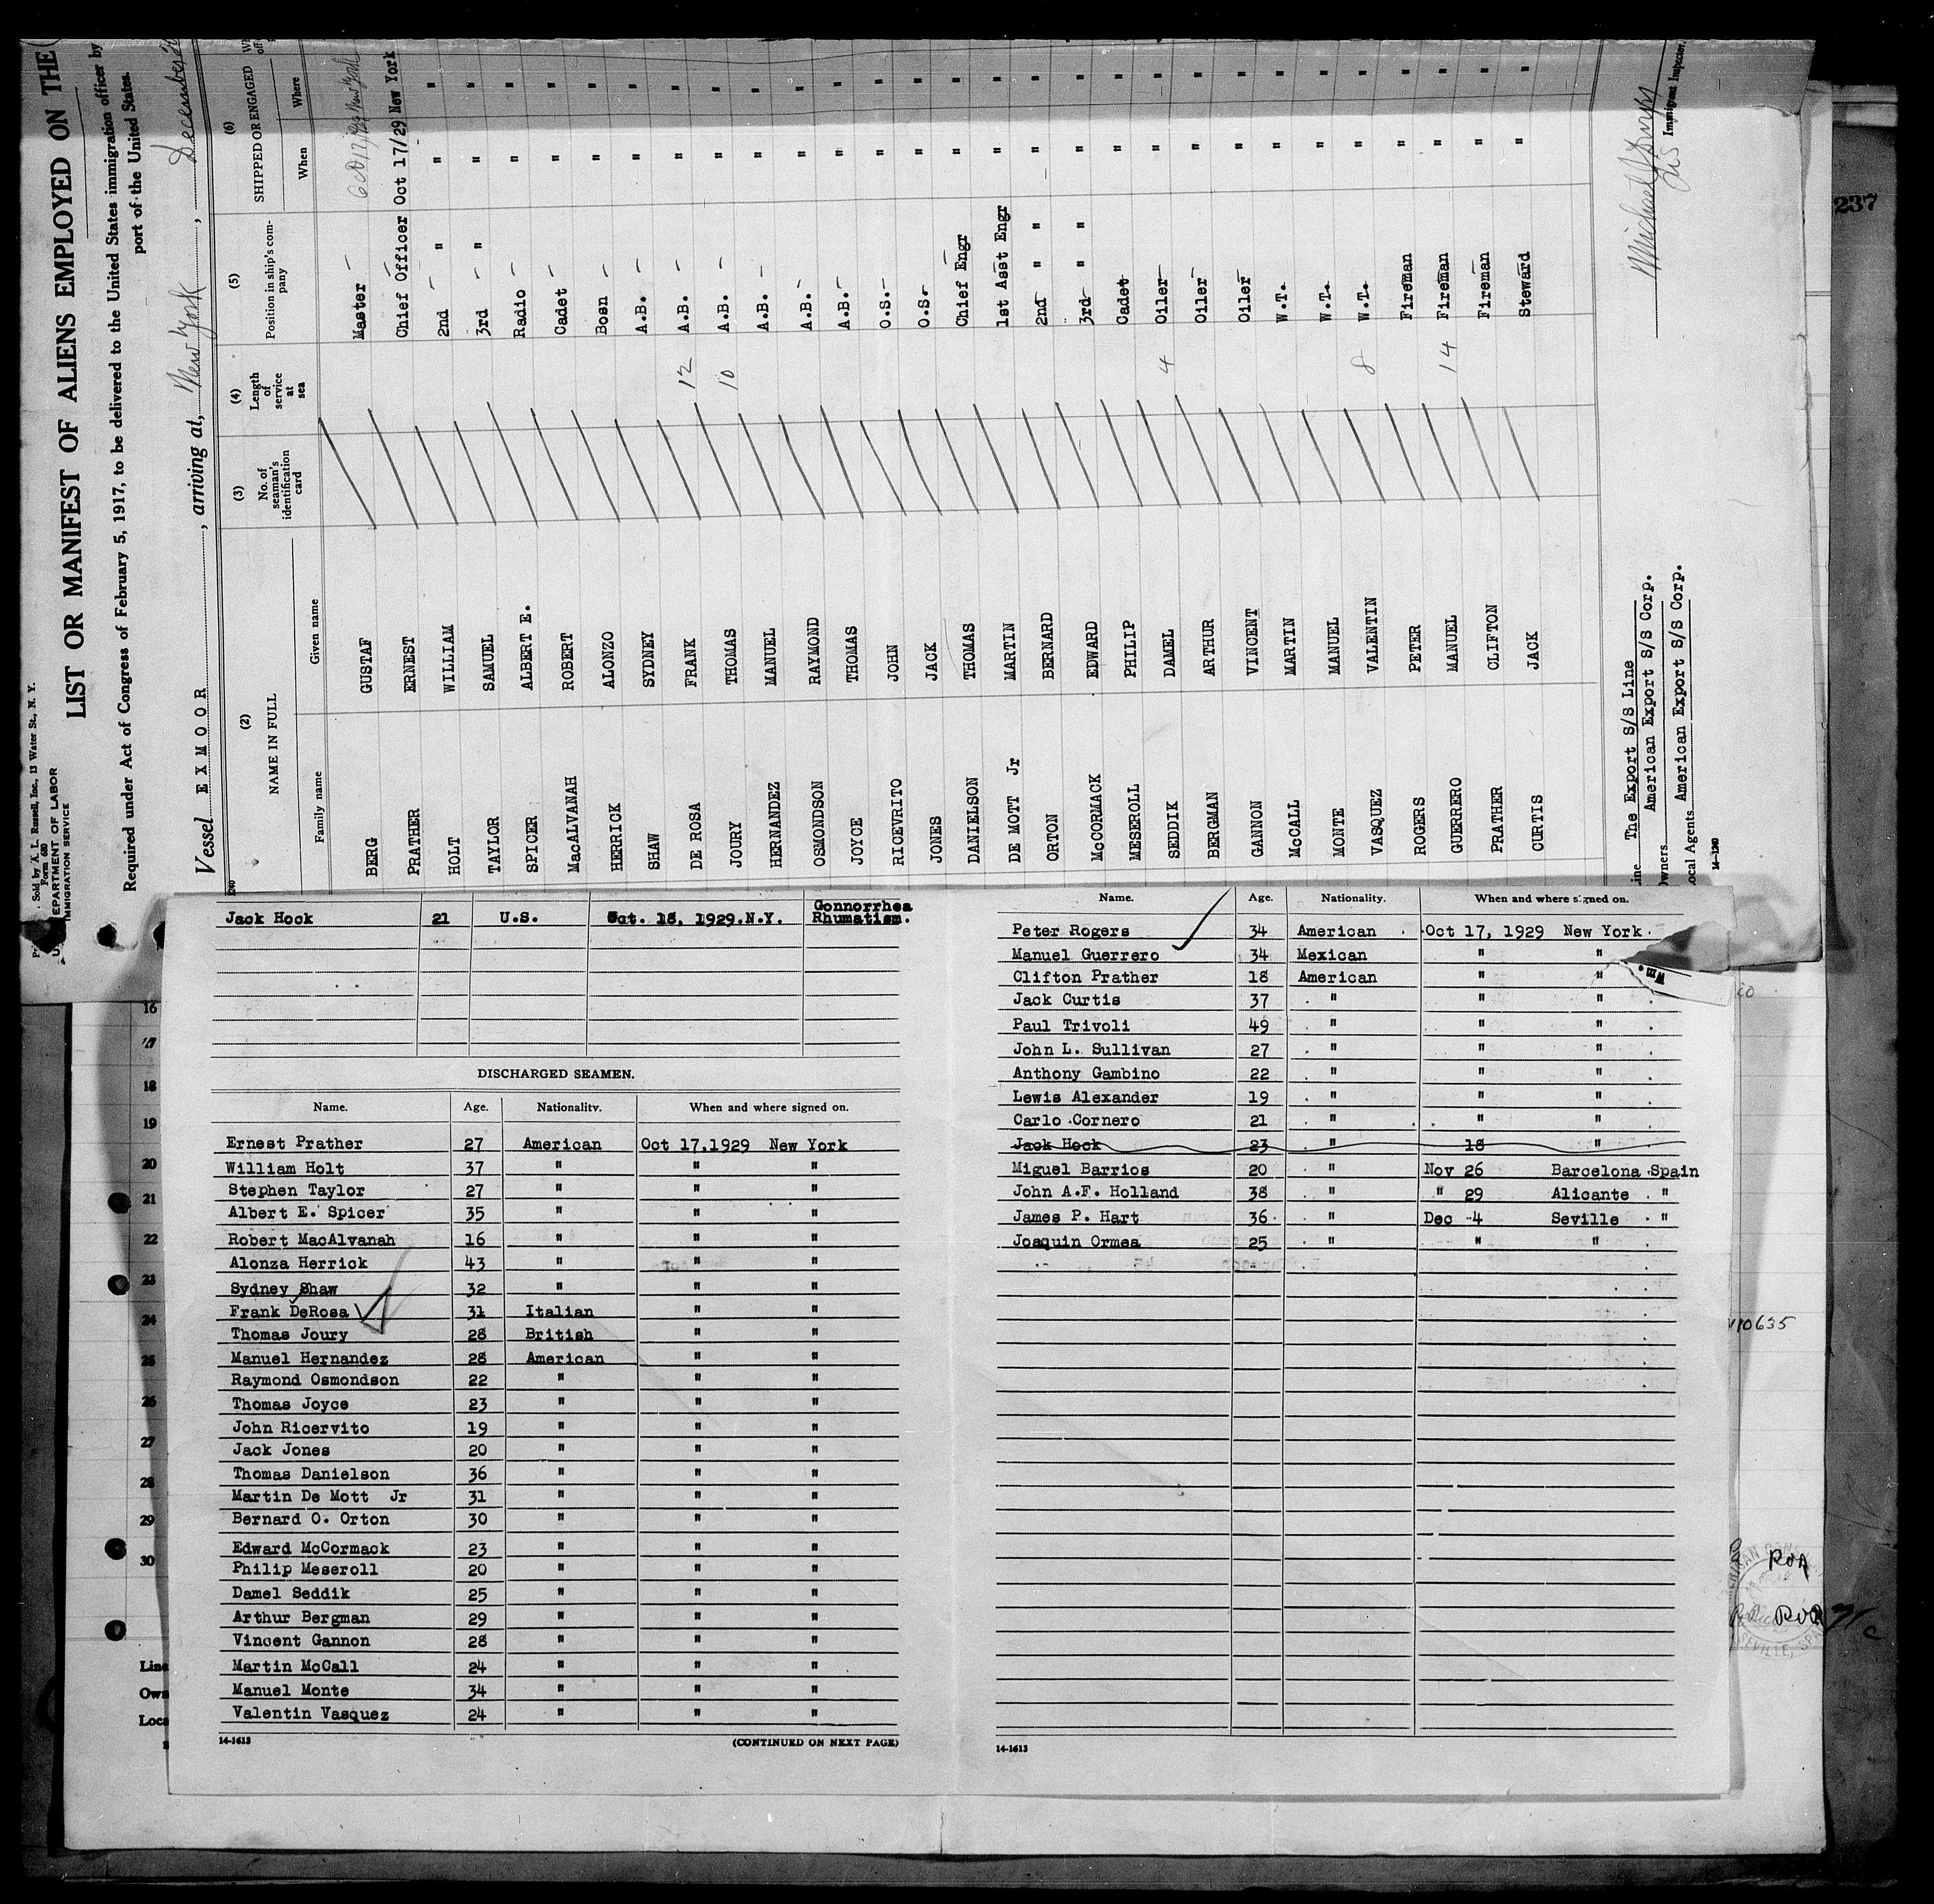 Sold by A. L. Russell, Inc., 13 Water St., N. Y.
Form 680
DEPARTMENT OF LABOR
IMMIGRATION SERVICE
LIST OR MANIFEST OF ALIENS EMPLOYED ON THE
Required under Act of Congress of February 5, 1917, to be delivered to the United States immigration officer by
port of the United States.
Vessel EXMOOR, arriving at, New York, December
(2) (3) (4) (5) (6)
NAME IN FULL No. of seaman's identification card Length of service at sea Position in ship's company SHIPPED OR ENGAGED
Family name Given name When Where
BERG GUSTAF Master New York
PRATHER ERNEST Chief Officer Oct 17/29 New York
HOLT WILLIAM 2nd " " "
TAYLOR SAMUEL 3rd " " "
SPICER ALBERT E. Radio " "
MacALVANAH ROBERT Cadet " "
HERRICK ALONZO Bosn " "
SHAW SYDNEY A.B. " "
DE ROSA FRANK 12 A.B. " "
JOURY THOMAS 10 A.B. " "
HERNANDEZ MANUEL A.B. " "
OSMONDSON RAYMOND A.B. " "
JOYCE THOMAS A.B. " "
RICEVRITO JOHN O.S. " "
JONES JACK O.S. " "
DANIELSON THOMAS Chief Engr " "
DE MOTT Jr MARTIN 1st Asst Engr " "
ORTON BERNARD 2nd " " " "
McCORMACK EDWARD 3rd " " " "
MESEROLL PHILIP Cadet " "
SEDDIK DAMEL 4 Oiler " "
BERGMAN ARTHUR Oiler " "
GANNON VINCENT Oiler " "
McCALL MARTIN W.T. " "
MONTE MANUEL W.T. " "
VASQUEZ VALENTIN 8 W.T. " "
ROGERS PETER Fireman " "
GUERRERO MANUEL 14 Fireman " "
PRATHER CLIFTON Fireman " "
CURTIS JACK Steward " "
Line The Export S/S Line
Owners American Export S/S Corp.
Local Agents American Export S/S Corp.
14-1240
Immigrant Inspector.
237
Jack Hock 21 U.S. Oct. 18, 1929.N.Y. Gonnorrhea Rhumatism.
DISCHARGED SEAMEN.
Name. Age. Nationality. When and where signed on.
Ernest Prather 27 American Oct 17,1929 New York
William Holt 37 " " "
Stephen Taylor 27 " " "
Albert E. Spicer 35 " " "
Robert MacAlvanah 16 " " "
Alonza Herrick 43 " " "
Sydney Shaw 32 " " "
Frank DeRosa 31 Italian " "
Thomas Joury 28 British " "
Manuel Hernandez 28 American " "
Raymond Osmondson 22 " " "
Thomas Joyce 23 " " "
John Ricervito 19 " " "
Jack Jones 20 " " "
Thomas Danielson 36 " " "
Martin De Mott Jr 31 " " "
Bernard O. Orton 30 " " "
Edward McCormack 23 " " "
Philip Meseroll 20 " " "
Damel Seddik 25 " " "
Arthur Bergman 29 " " "
Vincent Gannon 28 " " "
Martin McCall 24 " " "
Manuel Monte 34 " " "
Valentin Vasquez 24 " " "
14-1613 (CONTINUED ON NEXT PAGE)
Name. Age. Nationality. When and where signed on.
Peter Rogers 34 American Oct 17, 1929 New York
Manuel Guerrero 34 Mexican " "
Clifton Prather 18 American " "
Jack Curtis 37 " " "
Paul Trivoli 49 " " "
John L. Sullivan 27 " " "
Anthony Gambino 22 " " "
Lewis Alexander 19 " " "
Carlo Cornero 21 " " "
Jack Hock 23 " 18 "
Miguel Barrios 20 " Nov 26 Barcelona Spain
John A.F. Holland 38 " " 29 Alicante "
James P. Hart 36 " Dec 4 Seville "
Joaquin Ormea 25 " " "
14-1613
16
17
18
19
20
21
22
23
24
25
26
27
28
29
30
Line
Own
Loca
10635